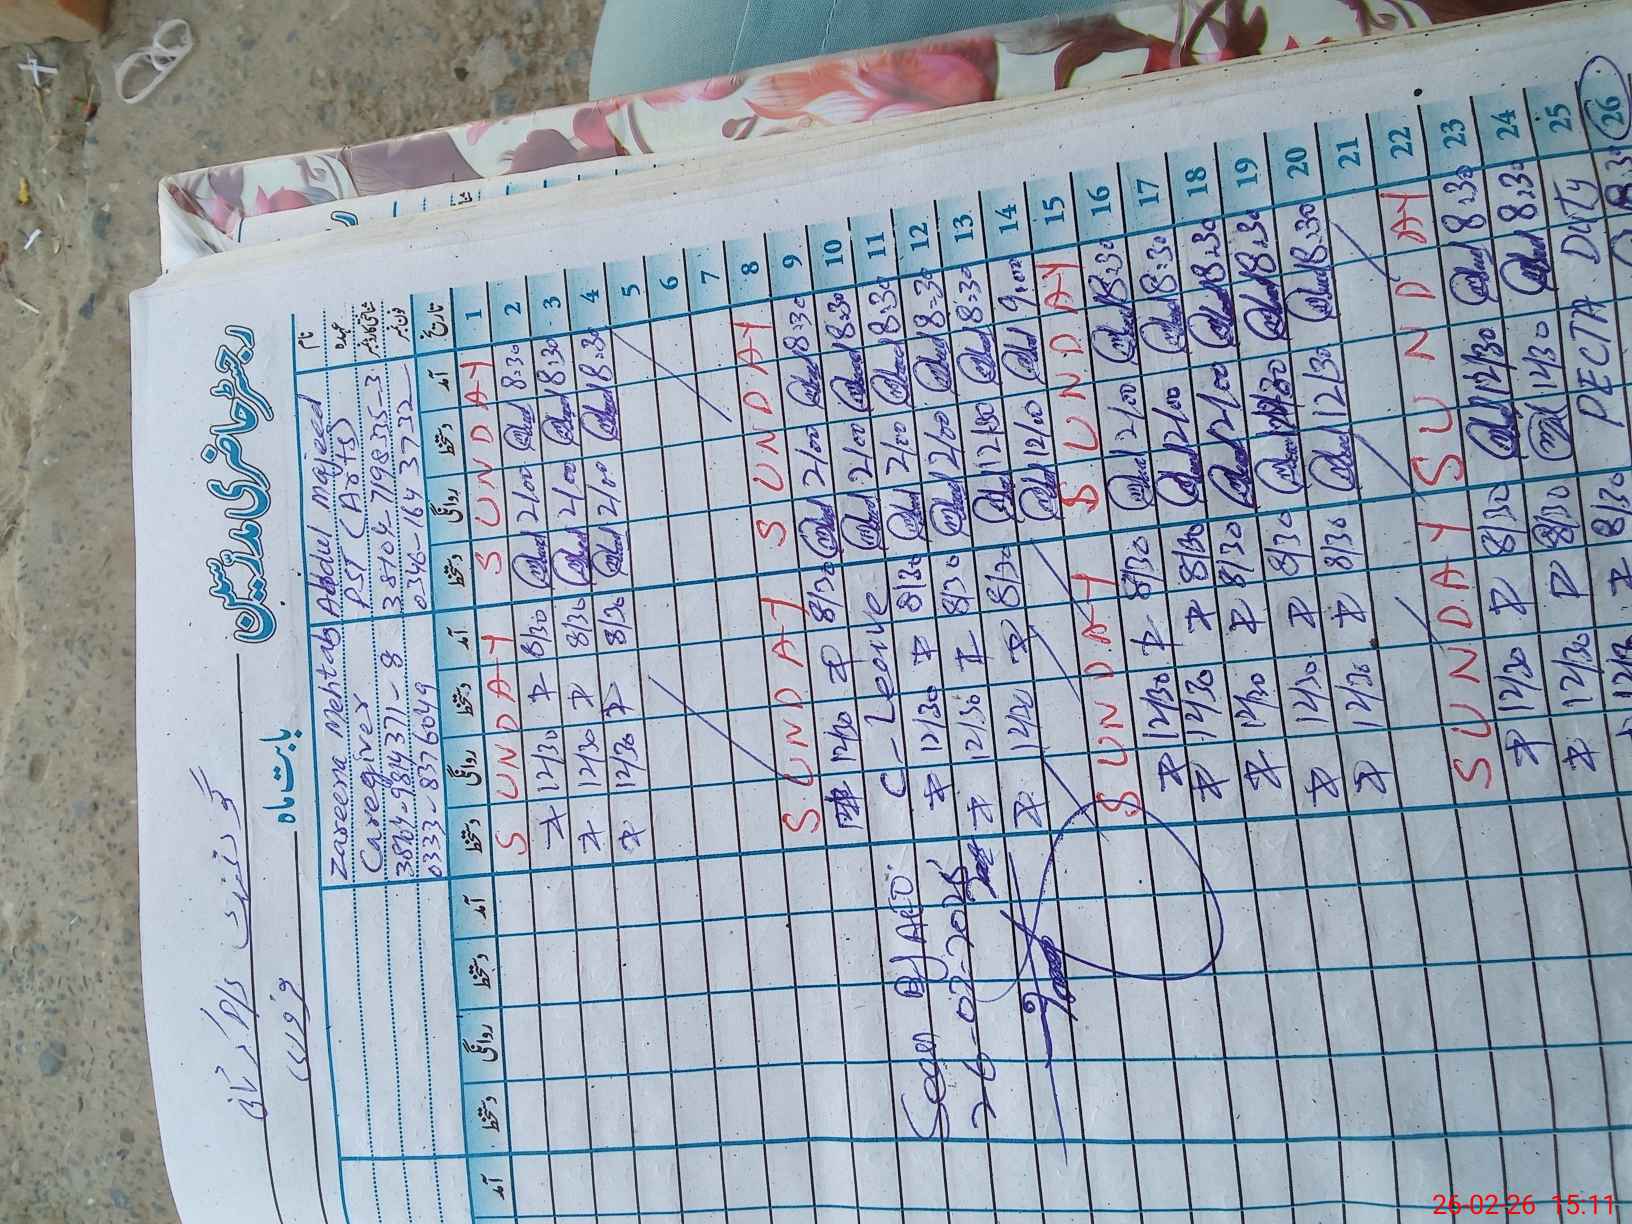 رجسٹر حاضری مدرّسین
بابت ماہ
فروری
نام Abdul Majeed Zareena Mehtab
عہدہ PST (Arts) Caregiver
شناختی کارڈ نمبر 38104-7198335-3 38104-9814371-8
فون نمبر 0346-1643732 0333-8376049
تاریخ آمد دستخط روانگی دستخط آمد دستخط روانگی دستخط آمد دستخط روانگی دستخط آمد
1 SUNDAY SUNDAY
2 8:30 2/00 8/30 12/30
3 8:30 2/00 8/30 12/30
4 8:30 2/00 8/30 12/30
5
6
7
8 SUNDAY SUNDAY
9 8:30 2/00 8/30 12/30
10 8:30 2/00 C-Leave
11 8:30 2/00 8/30 12/30
12 8:30 12/00 8/30 12/30
13 8:30 12/00 8/30 12/30
14 9:00 12/00
15 SUNDAY SUNDAY
16 8:30 12/00 8/30 12/30
17 8:30 12/00 8/30 12/30
18 8:30 12/00 8/30 12/30
19 8:30 8/30 12/30
20 8:30 12/30 8/30 12/30
21
22 SUNDAY SUNDAY
23 8:30 12/30 8/30 12/30
24 8:30 12/30 8/30 12/30
25 PECTA DUTY 8/30
26
Seen By AEO
26-02-2026
26-02-26 15:11